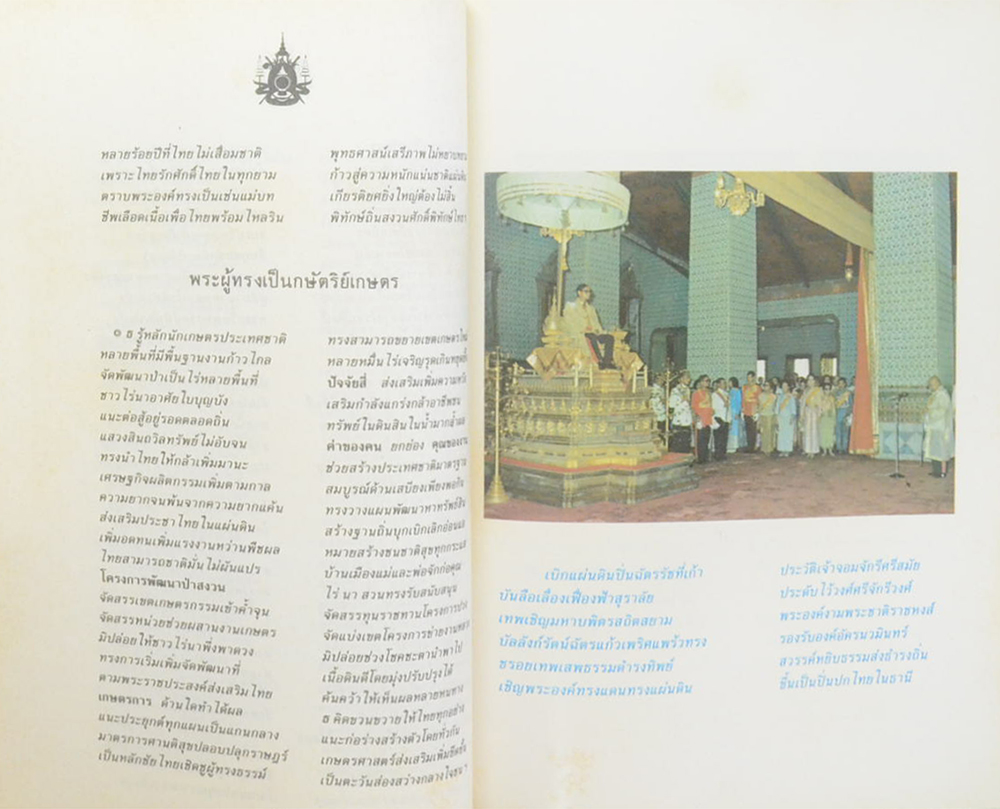 หลายร้อยปีที่ไทยไม่เสื่อมชาติ
เพราะไทยรักศักดิ์ไทยในทุกยาม
ตราบพระองค์ทรงเป็นเช่นแม่บท
ชีพเลือดเนื้อเพื่อไทยพร้อมไหลริน
พุทธศาสน์เสรีภาพไม่หยาบหยาม
ก้าวสู่ความหนักแน่นชาติแผ่นดิน
เกียรติยศยิ่งใหญ่ต้องไม่สิ้น
พิทักษ์ถิ่นสงวนศักดิ์พิทักษ์ไทย
พระผู้ทรงเป็นกษัตริย์เกษตร
๏ ธ รู้หลักนักเกษตรประเทศชาติ
หลายพื้นที่มีพื้นฐานงานก้าวไกล
จัดพัฒนาป่าเป็นไร่หลายพื้นที่
ชาวไร่นาอาศัยใบบุญบัง
แนะต่อสู้อยู่รอดตลอดถิ่น
แสวงสินถวิลทรัพย์ไม่อับจน
ทรงนำไทยให้กล้าเพิ่มมานะ
เศรษฐกิจผลิตกรรมเพิ่มตามกาล
ความยากจนพ้นจากความยากแค้น
ส่งเสริมประชาไทยในแผ่นดิน
เพิ่มอดทนเพิ่มแรงงานหว่านพืชผล
ไทยสามารถชาติมั่นไม่ผันแปร
โครงการพัฒนาป่าสงวน
จัดสรรเขตเกษตรกรรมเช้าค้ำจุน
จัดสรรหน่วยช่วยผสานงานเกษตร
มิปล่อยให้ชาวไร่นาพึ่งพาดวง
ทรงการเริ่มเพิ่มจัดพัฒนาที่
ตามพระราชประสงค์ส่งเสริมไทย
เกษตรการ ด้านใดทำได้ผล
แนะประยุกต์ทุกแผนเป็นแกนกลาง
มาตรการศานติสุขปลอบปลุกราษฎร์
เป็นหลักชัยไทยเชิดชูผู้ทรงธรรม์
ทรงสามารถขยายเขตเกษตรใหม่
หลายหมื่นไร่เจริญรุดเกินหยุดยั้ง
ปัจจัยสี่ ส่งเสริมเพิ่มความหวัง
เสริมกำลังแกร่งกล้าอาชีพชน
ทรัพย์ในดินสินในน้ำมาก
ค่าของคน ยกย่อง คุณของงาน
ช่วยสร้างประเทศชาติมาตาฐาน
สมบูรณ์ด้านเสบียงเพียงพอกิน
ทรงวางแผนพัฒนาหาทรัพย์สิน
สร้างฐานถิ่นบุกเบิกเลิกอ่อนแอ
หมายสร้างชนชาติสุขทุกกระแส
บ้านเมืองแม่และพ่อจักก่อคุณ
ไร่ นา สวนทรงรับสนับสนุน
จัดสรรทุนราชทานโครงการปวง
จัดแบ่งเขตโครงการช่วยงานหลวง
มิปล่อยช่วงโชคชะตานำพาไป
เนื้อดินดีโดยมุ่งปรับปรุงได้
ค้นคว้าให้เห็นผลหลายหนทาง
ธ คิดขวนขวายให้ไทยทุกอย่าง
แนะก่อร่างสร้างตัวโดยทั่วกัน
เกษตรศาสตร์ส่งเสริมเพิ่มขีดขั้น
เป็นตะวันส่องสว่างกลางใจชน ฯ
เบิกแผ่นดินปิ่นฉัตรรัชที่เก้า
บันลือเลื่องเฟื่องฟ้าสุราลัย
เทพเชิญมหาบพิตรสถิตสยาม
บัลลังก์รัตน์ฉัตรแก้วเพริศแพร้วทรง
ชรอยเทพเสพธรรมดำรงทิพย์
เชิญพระองค์ทรงแดนทรงแผ่นดิน
ประวัติเจ้าจอมจักรีศรีสมัย
ประดับไว้วงศ์ศรีจักรีวงศ์
พระองค์งามพระชาติราชหงส์
รองรับองค์อัครนวมินทร์
สวรรค์หยิบธรรมส่งธำรงถิ่น
ขึ้นเป็นปิ่นปกไทยในธานี